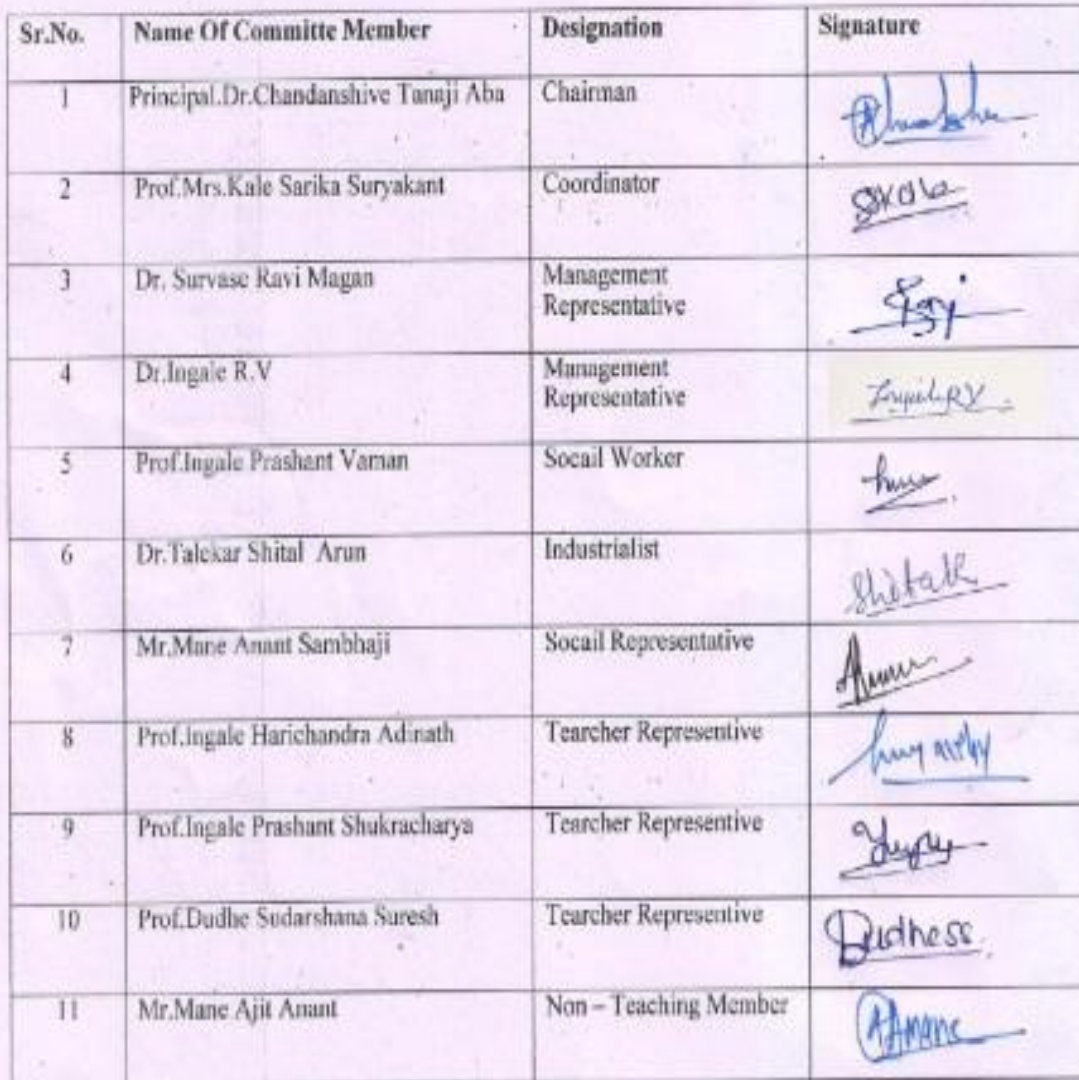 Sr.No. Name Of Committe Member Designation Signature
1 Principal.Dr.Chandanshive Tanaji Aba Chairman
2 Prof.Mrs.Kale Sarika Suryakant Coordinator SKale
3 Dr. Survase Ravi Magan Management
Representative
4 Dr.Ingale R.V Management
Representative Ingale RV
5 Prof.Ingale Prashant Vaman Socail Worker
6 Dr.Talekar Shital Arun Industrialist Shital
7 Mr.Mane Anant Sambhaji Socail Representative
8 Prof.Ingale Harichandra Adinath Tearcher Representive
9 Prof.Ingale Prashant Shukracharya Tearcher Representive
10 Prof.Dudhe Sudarshana Suresh Tearcher Representive Dudhess.
11 Mr.Mane Ajit Anant Non – Teaching Member AAmane